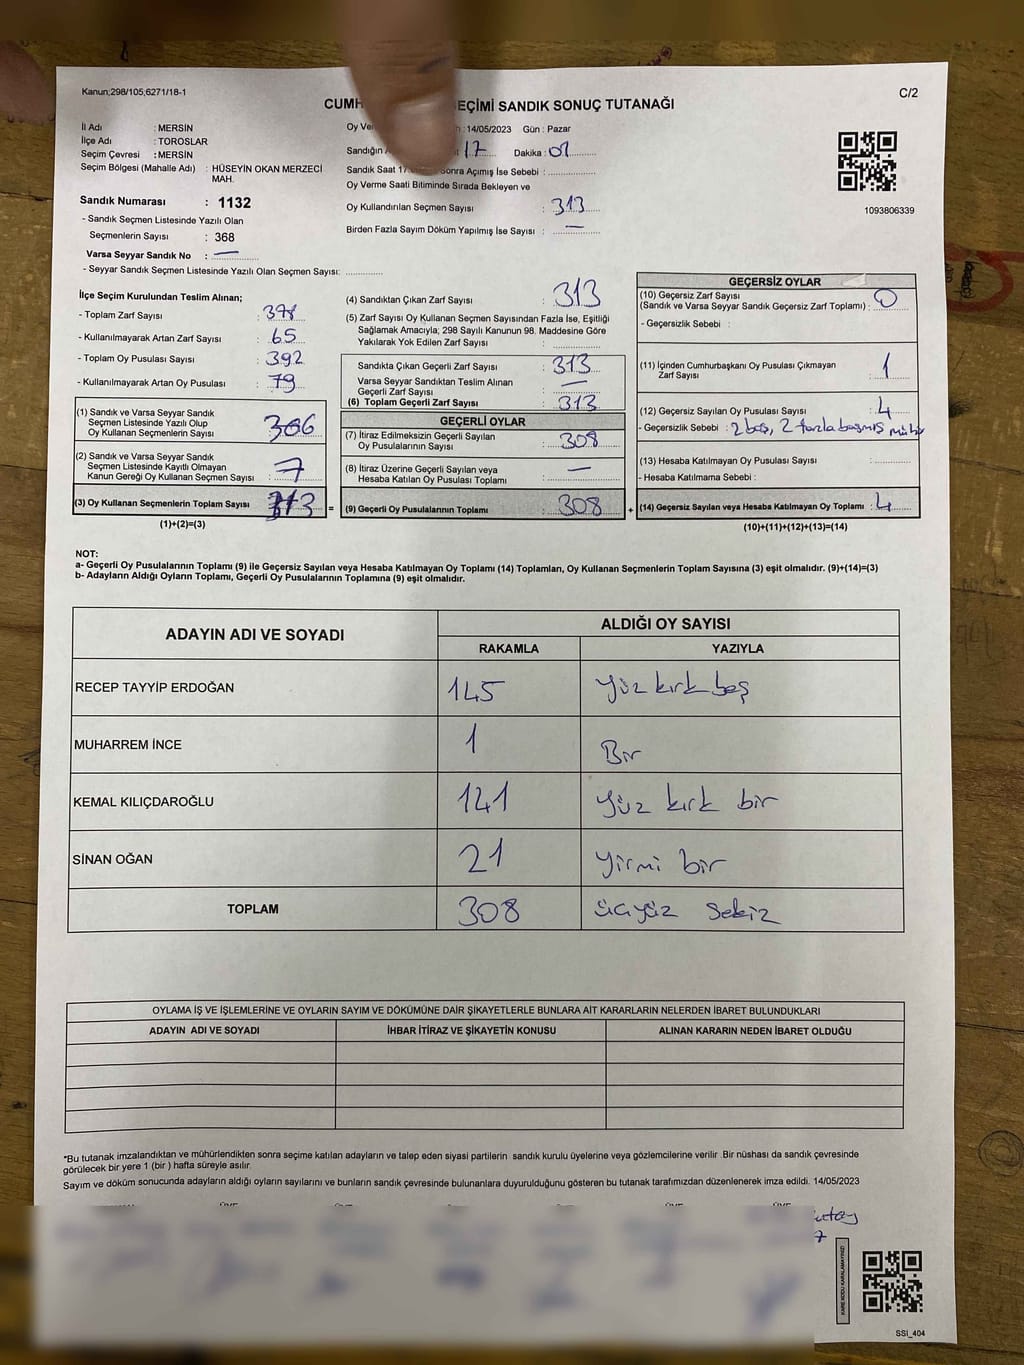 Kanun;298/105;6271/18-1
C/2
EÇİMİ SANDIK SONUÇ TUTANAĞI
İl Adı : MERSİN
İlçe Adı : TOROSLAR
Seçim Çevresi : MERSİN
Seçim Bölgesi (Mahalle Adı) : HÜSEYİN OKAN MERZECİ
MAH.
Sandık Numarası : 1132
- Sandık Seçmen Listesinde Yazılı Olan
Seçmenlerin Sayısı : 368
Varsa Seyyar Sandık No : —
- Seyyar Sandık Seçmen Listesinde Yazılı Olan Seçmen Sayısı: ............
Oy Ve : 14/05/2023 Gün : Pazar
Sandığın 17 Dakika : 01
Sandık Saat 17 onra Açımış İse Sebebi :
Oy Verme Saati Bitiminde Sırada Bekleyen ve
Oy Kullandırılan Seçmen Sayısı : 313
Birden Fazla Sayım Döküm Yapılmış İse Sayısı : —
1093806339
İlçe Seçim Kurulundan Teslim Alınan;
- Toplam Zarf Sayısı : 378
- Kullanılmayarak Artan Zarf Sayısı : 65
- Toplam Oy Pusulası Sayısı : 392
- Kullanılmayarak Artan Oy Pusulası : 79
(1) Sandık ve Varsa Seyyar Sandık
Seçmen Listesinde Yazılı Olup
Oy Kullanan Seçmenlerin Sayısı : 306
(2) Sandık ve Varsa Seyyar Sandık
Seçmen Listesinde Kayıtlı Olmayan
Kanun Gereği Oy Kullanan Seçmen Sayısı : 7
(3) Oy Kullanan Seçmenlerin Toplam Sayısı 313 =
(1)+(2)=(3)
(4) Sandıktan Çıkan Zarf Sayısı : 313
(5) Zarf Sayısı Oy Kullanan Seçmen Sayısından Fazla İse, Eşitliği
Sağlamak Amacıyla; 298 Sayılı Kanunun 98. Maddesine Göre
Yakılarak Yok Edilen Zarf Sayısı :
Sandıkta Çıkan Geçerli Zarf Sayısı : 313
Varsa Seyyar Sandıktan Teslim Alınan
Geçerli Zarf Sayısı : —
(6) Toplam Geçerli Zarf Sayısı : 313
GEÇERLİ OYLAR
(7) İtiraz Edilmeksizin Geçerli Sayılan
Oy Pusulasının Sayısı : 308
(8) İtiraz Üzerine Geçerli Sayılan veya
Hesaba Katılan Oy Pusulası Toplamı : —
(9) Geçerli Oy Pusulalarının Toplamı : 308 +
GEÇERSİZ OYLAR
(10) Geçersiz Zarf Sayısı
(Sandık ve Varsa Seyyar Sandık Geçersiz Zarf Toplamı) : 0
- Geçersizlik Sebebi :
(11) İçinden Cumhurbaşkanı Oy Pusulası Çıkmayan
Zarf Sayısı : 1
(12) Geçersiz Sayılan Oy Pusulası Sayısı : 4
- Geçersizlik Sebebi : 2 boş, 2 fazla basmış mühür
(13) Hesaba Katılmayan Oy Pusulası Sayısı :
- Hesaba Katılmama Sebebi :
(14) Geçersiz Sayılan veya Hesaba Katılmayan Oy Toplamı : 4
(10)+(11)+(12)+(13)=(14)
NOT:
a- Geçerli Oy Pusulalarının Toplamı (9) ile Geçersiz Sayılan veya Hesaba Katılmayan Oy Toplamı (14) Toplamları, Oy Kullanan Seçmenlerin Toplam Sayısına (3) eşit olmalıdır. (9)+(14)=(3)
b- Adayların Aldığı Oyların Toplamı, Geçerli Oy Pusulalarının Toplamına (9) eşit olmalıdır.
ADAYIN ADI VE SOYADI
ALDIĞI OY SAYISI
RAKAMLA YAZIYLA
RECEP TAYYİP ERDOĞAN 145 Yüz kırk beş
MUHARREM İNCE 1 Bir
KEMAL KILIÇDAROĞLU 141 Yüz kırk bir
SİNAN OĞAN 21 Yirmi bir
TOPLAM 308 üçyüz sekiz
OYLAMA İŞ VE İŞLEMLERİNE VE OYLARIN SAYIM VE DÖKÜMÜNE DAİR ŞİKAYETLERLE BUNLARA AİT KARARLARIN NELERDEN İBARET BULUNDUKLARI
ADAYIN ADI VE SOYADI İHBAR İTİRAZ VE ŞİKAYETİN KONUSU ALINAN KARARIN NEDEN İBARET OLDUĞU
*Bu tutanak imzalandıktan ve mühürlendikten sonra seçime katılan adayların ve talep eden siyasi partilerin sandık kurulu üyelerine veya gözlemcilerine verilir .Bir nüshası da sandık çevresinde
görülecek bir yere 1 (bir ) hafta süreyle asılır.
Sayım ve döküm sonucunda adayların aldığı oyların sayılarını ve bunların sandık çevresinde bulunanlara duyurulduğunu gösteren bu tutanak tarafımızdan düzenlenerek imza edildi. 14/05/2023
KARE KODU KARALAMAYINIZ!
SSI_404